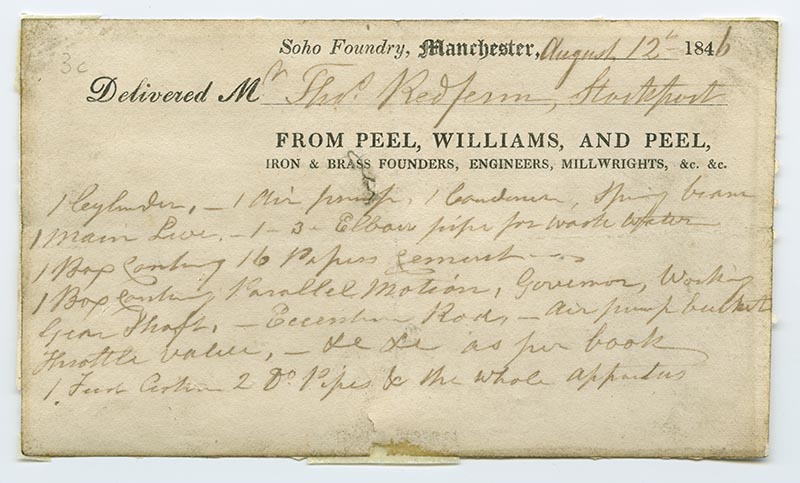 3c
Soho Foundry, Manchester, August 12th 1846
Delivered Mr Thos. Redfern, Stockport
FROM PEEL, WILLIAMS, AND PEEL,
IRON & BRASS FOUNDERS, ENGINEERS, MILLWRIGHTS, &c. &c.
1 Cylinder, – 1 Air pump, 1 Condenser, Spring beam
1 Main – 1 – 3 Elbow pipe for waste water
1 Box Containg 16 Papers Cement
1 Box Containg Parallel Motion, Governor, Working
Gear Shaft, – Eccentric Rod, – Air pump bucket
Throttle valve, – &c &c as per book
1 Cistern 2 Do Pipes & the whole apparatus